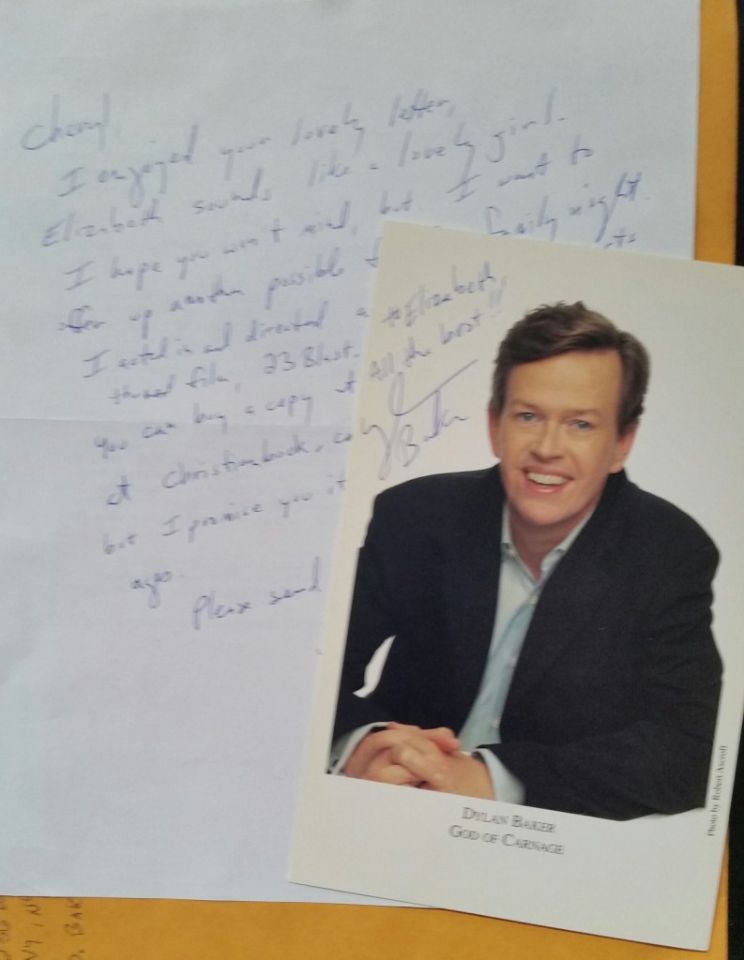 Cheryl,
I enjoyed your lovely letter,
Elizabeth sounds like a lovely girl.
I hope you won't mind, but I want to
offer up another possible family night.
I acted in and directed a
themed film, 23 Blast.
You can buy a copy at
at Christianbook.co
but I promise you it
ages.
Please send
to Elizabeth,
All the best!!
Baker
DYLAN BAKER
GOD OF CARNAGE
Photo by Robert Ascroft